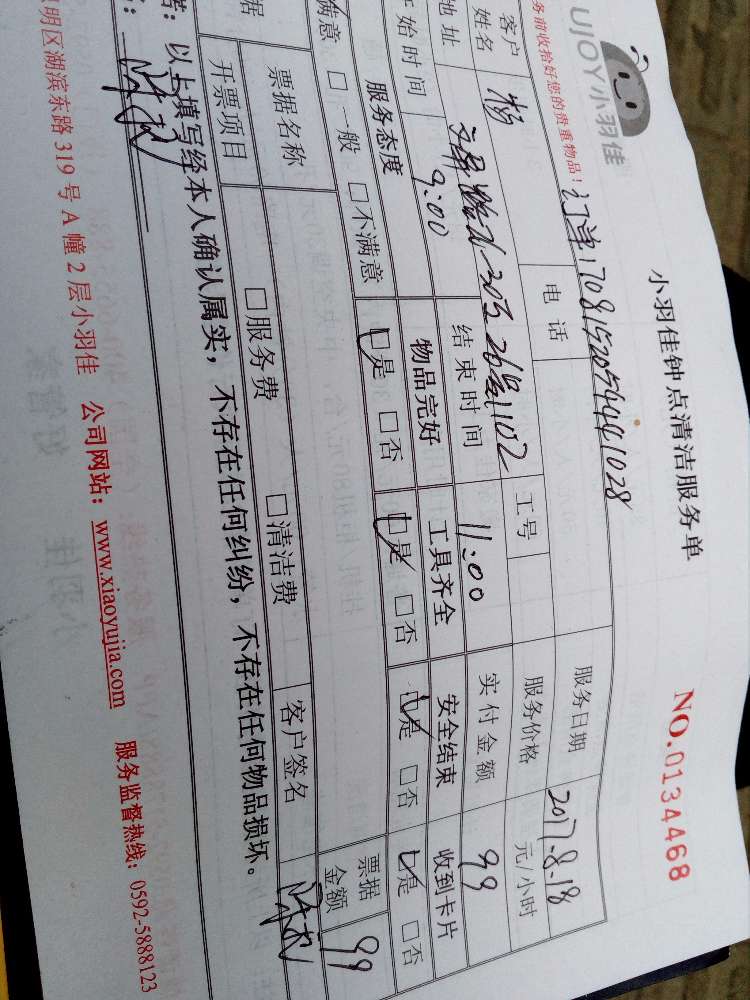 UJOY小羽佳
小羽佳钟点清洁服务单
NO.0134468
务前收拾好您的贵重物品！
订单170815205944441028
客户姓名 杨 电话 工号 服务日期 2017.8.18
地址 26号1102 服务价格 元/小时
开始时间 9:00 结束时间 11:00 实付金额 99
服务态度 物品完好 工具齐全 安全结束 收到卡片
满意 □一般 □不满意 □是 □否 □是 □否 □是 □否 □是 □否
据 票据名称 票据金额 99
开票项目 □服务费 □清洁费 客户签名
若：以上填写经本人确认属实，不存在任何纠纷，不存在任何物品损坏。
明区湖滨东路 319 号 A 幢 2 层小羽佳 公司网站：www.xiaoyujia.com 服务监督热线：0592-5888123